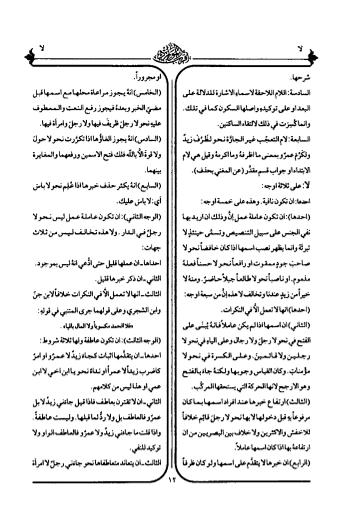 لا
لا
شرحها.
السادسة: اللام اللاحقة لاسماء الاشارة للدلالة على
البعد او على توكيده واصلها السكون كما في تلك.
وانما كسرت في ذلك لالتقاء الساكنين.
السابعة: لام التعجب غير الجارّة نحو لظرُف زيدٌ
ولكرُم عمرٌو بمعنى ما اظرفهُ وما اكرمهُ وقيل هي لام
الابتداء او جواب قسم مقدّر (عن المغني بحذف).
لا: على ثلاثة اوجه:
احدها: ان تكون نافية. وهذه على خمسة اوجه:
(احدها): ان تكون عاملة عمل إنّ وذلك ان اريد بها
نفي الجنس على سبيل التنصيص وتسمّى حينئذٍ لا
تبرئة وانما يظهر نصب اسمها اذا كان خافضاً نحو لا
صاحبَ جودٍ ممقوت او رافعاً نحو لا حسناً فعلهُ
مذموم. او ناصباً نحو لا طالعاً جبلاً حاضرٌ. ومنهُ لا
خيراً من زيدٍ عندنا وتخالف لا هذه إنّ من سبعة اوجه:
(احدها) انها لا تعمل الّا في النكرات.
(الثاني) ان اسمها اذا لم يكن عاملاً فانهُ يُبنى على
الفتح في نحو لا رجلَ ولا رجال وعلى الياءِ في نحو لا
رجلين ولا قائمين. وعلى الكسرة في نحو لا
مؤمنات. وكان القياس وجوبها ولكنهُ جاءَ بالفتح
وهو الارجح لانها الحركة التي يستحقها المركّب.
(الثالث) ارتفاع خبرها عند افراد اسمها بما كان
مرفوعاً بهِ قبل دخولها لا بها نحو لا رجلَ قائم خلافاً
للاخفش والاكثرين ولا خلاف بين البصريين من ان
ارتفاعهُ بها اذا كان اسمها عاملاً.
(الرابع) ان خبرها لا يتقدّم على اسمها ولو كان ظرفاً
او مجروراً.
(الخامس) انهُ يجوز مراعاة محلها مع اسمها قبل
مضيّ الخبر وبعدهُ فيجوز رفع النعت والمعطوف
عليهِ نحو لا رجلَ ظريف فيها ولا رجلَ وامرأة فيها.
(السادس) انهُ يجوز الغاؤُها اذا تكررت نحو لا حول
ولا قوة الّا بالله فلك فتح الاسمين ورفعهما والمغايرة
بينهما.
(السابع) انهُ يكثر حذف خبرها اذا عُلم نحو لا باس
أي: لا باس عليك.
(الوجه الثاني): ان تكون عاملة عمل ليس نحو لا
رجلٌ في الدار. ولا هذه تخالف ليس من ثلاث
جهات:
احداها-ان عملها قليل حتى ادُّعي انهُ ليس بموجود.
الثاني-ان ذكر خبرها قليل.
الثالث-انها لا تعمل الّا في النكرات خلافاً لابن جنّ
وابن الشجري وعلى قولهما جرى المتنبي في قولهِ:
فلا الحمد مكسوباً ولا المال باقيا.
(الوجه الثالث) ان تكون عاطفة ولها ثلاثة شروط:
احداها-ان يتقدّمها اثبات كجاءَ زيدٌ لا عمرٌو او امرٌ
كاضرب زيداً لا عمراً او نداءٌ نحو يا ابن اخي لا ابن
عمي او هذا ليس من كلامهم.
الثاني-ان لا تقترن بعاطف فاذا قيل جاءَني زيدٌ لا بل
عمرٌو فالعاطف بل ولا ردٌّ لما قبلها. وليست عاطفةً.
واذا قلت ما جاءَني زيدٌ ولا عمرٌو فالعاطف الواو ولا
توكيد للنفي.
الثالث-ان يتعاند متعاطفاها نحو جاءَني رجلٌ لا امرأة
١٢